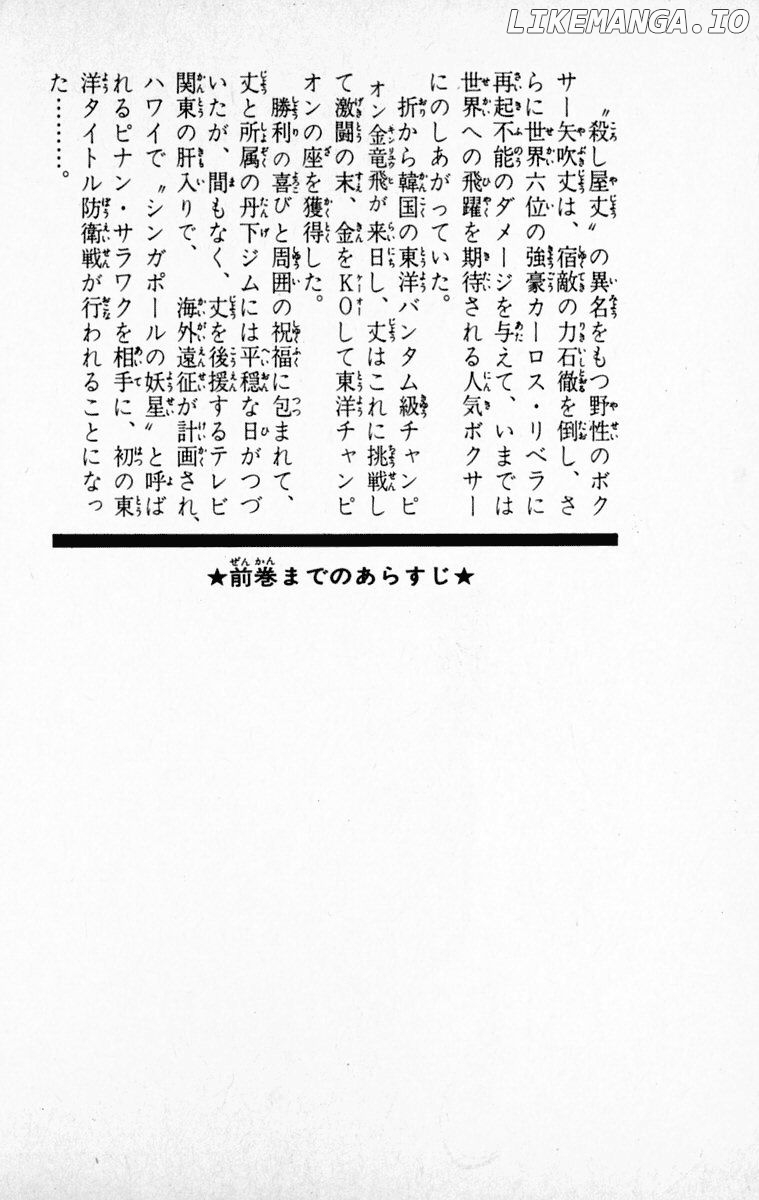 LIKEMANGA.IO
〝殺し屋丈〟の異名をもつ野性のボク
サー矢吹丈は、宿敵の力石徹を倒し、さ
らに世界六位の強豪カーロス・リベラに
再起不能のダメージを与えて、いまでは
世界への飛躍を期待される人気ボクサー
にのしあがっていた。
折から韓国の東洋バンタム級チャンピ
オン金竜飛が来日し、丈はこれに挑戦し
て激闘の末、金をKOして東洋チャンピ
オンの座を獲得した。
勝利の喜びと周囲の祝福に包まれて、
丈と所属の丹下ジムには平穏な日がつづ
いたが、間もなく、丈を後援するテレビ
関東の肝入りで、海外遠征が計画され、
ハワイで〝シンガポールの妖星〟と呼ば
れるピナン・サラワクを相手に、初の東
洋タイトル防衛戦が行われることになっ
た………。
★前巻までのあらすじ★